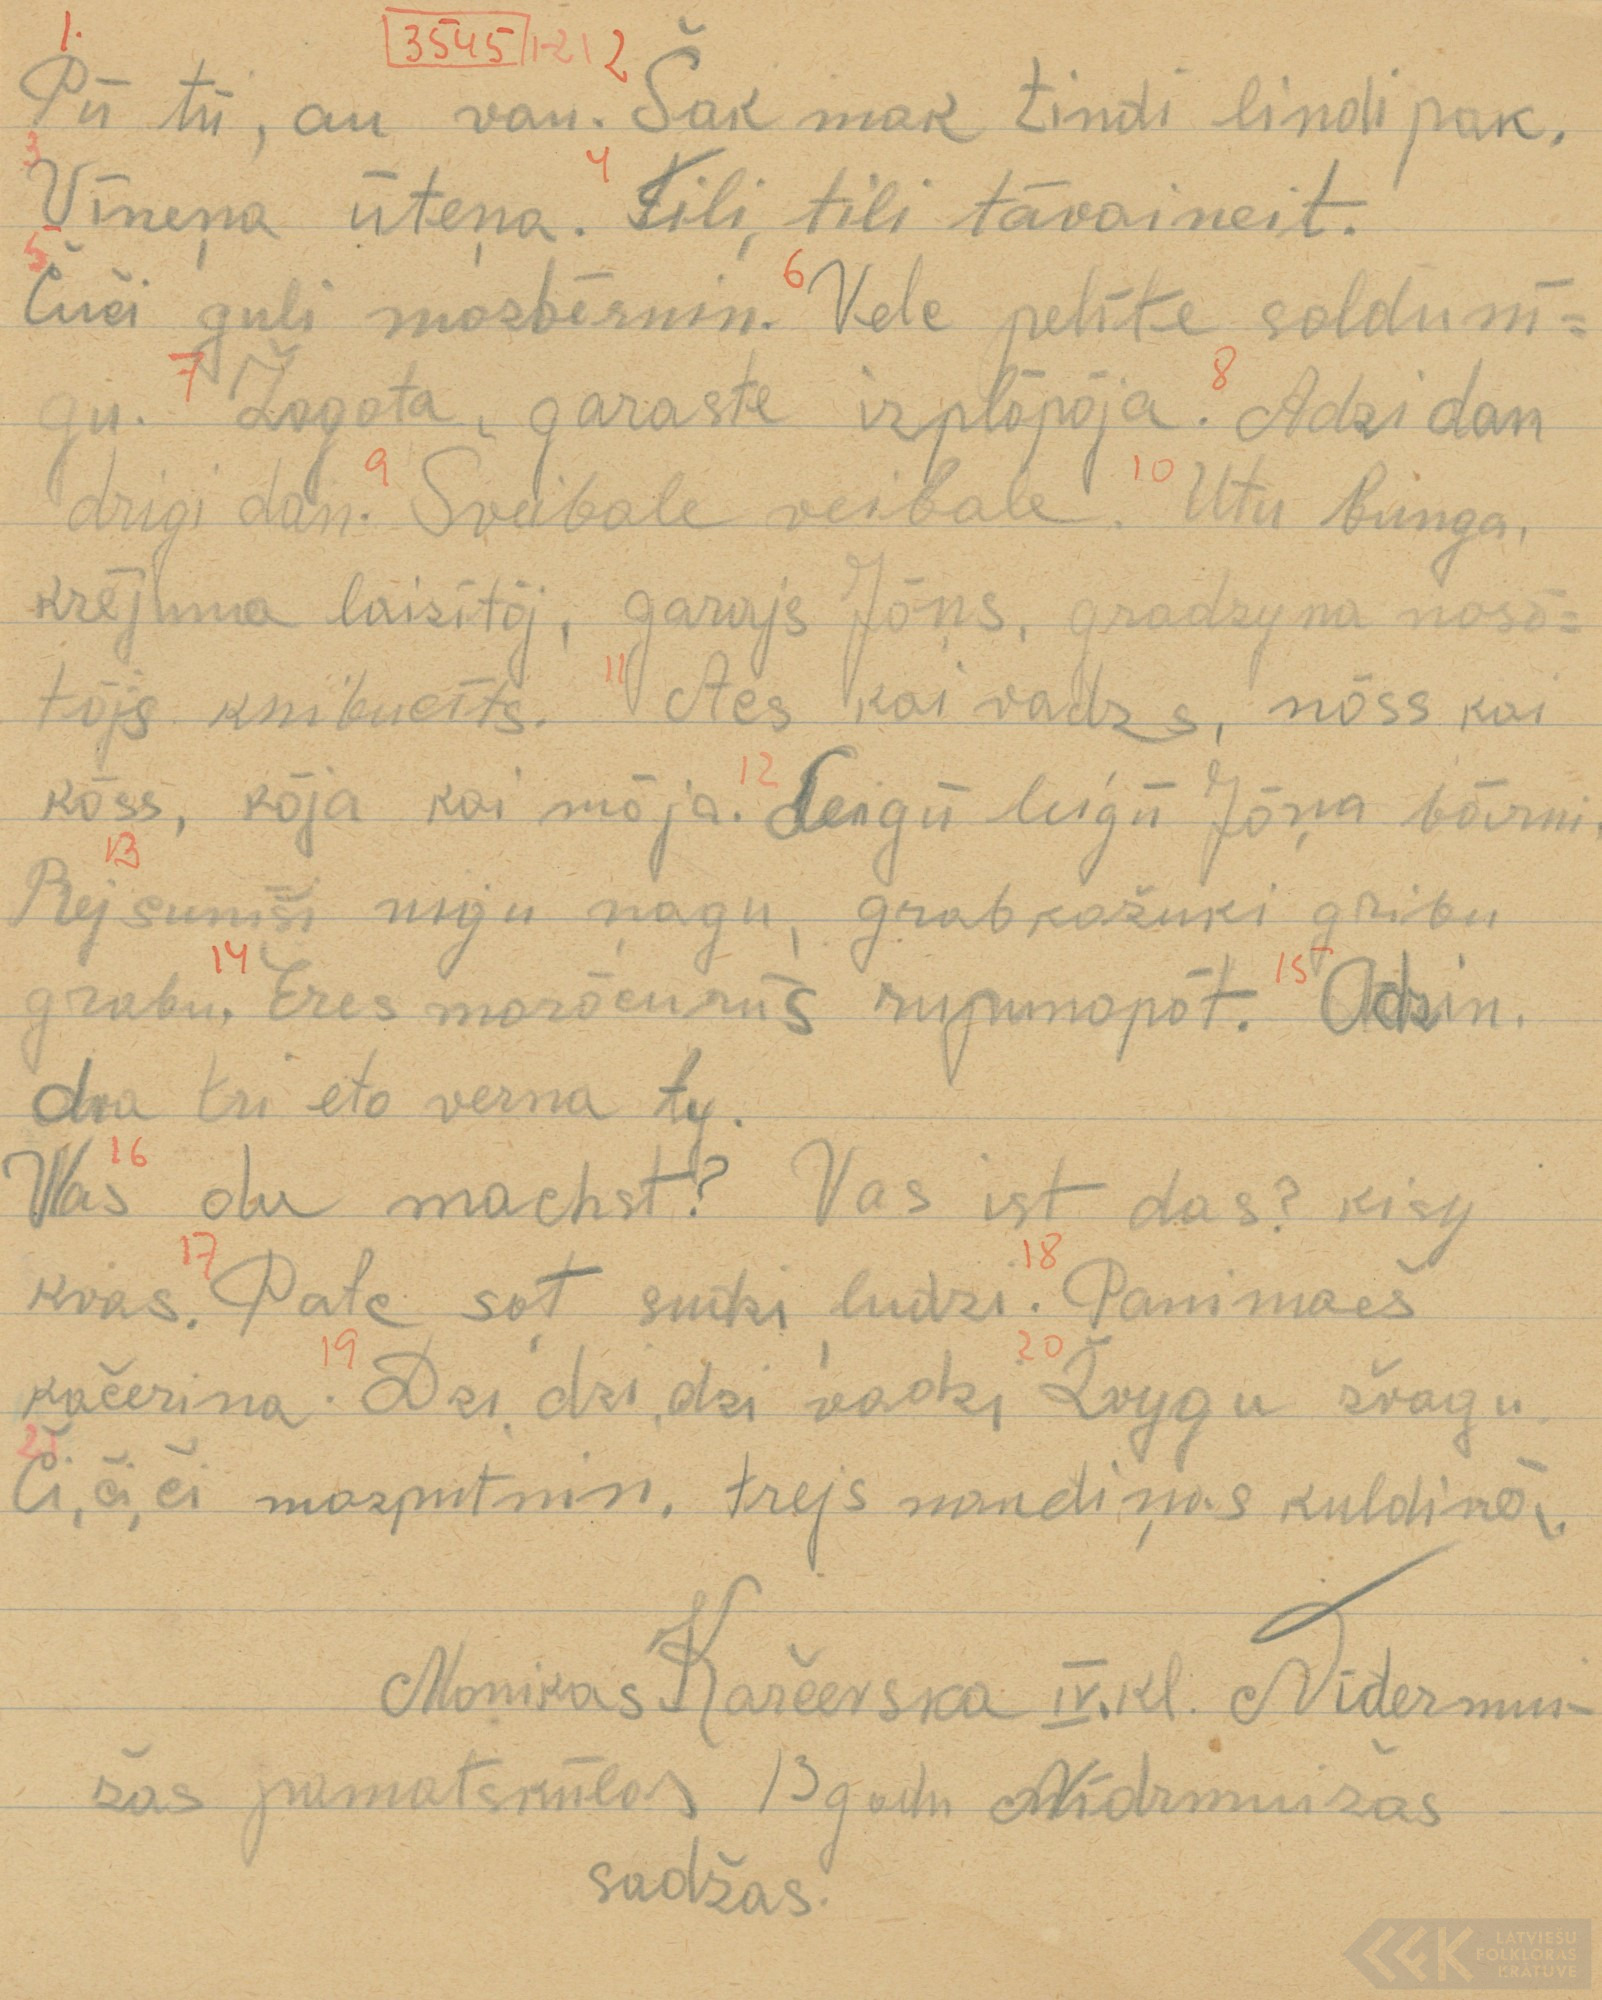 1. 3545 1-21 2
Pū tū, au vau. Šak mak tindi lindi pak.
3 4
Vīneņa ūteņa. Tili, tili tāvaineit.
5 6
Čuči guli mozbērnin. Vele pelīte soldumī=
7 8
gu. Žogota, garaste izplōpōja. Adzi dan
9 10
drigi dan. Sveibale veibale. Utu bunga,
krējuma laizītōj, garajs Jōņs, gradzyna nosō=
11
tōjs knibucīts. Aes kai vadzs, nōss kai
12
kōss, kōja kai mōja. Leigū leigū Jōņa bōrni,
13
Rej sunīši nigu ņagu, grabkažuki gribu
14 15
grabu. Eres morōcurūs rupumopōt. Odzin.
dva tri eto verna ty.
16
Was du machst? Vas ist das? kisy
17 18
kvas. Pate soţ sudzi ludzi. Panimaeš
19 20
kačerina. Dzi dzi, dzi vadzi Žvygu žvagu.
21
Či, či, či mozputnin, trejs naudiņas kuldinōj.
Monikas Karčevska IV. kl. Nīdermui-
žas pamatskūlas 13 godu Nīdrmuižas
sadžas.
LATVIEŠU
FOLKLORAS
KRĀTUVE